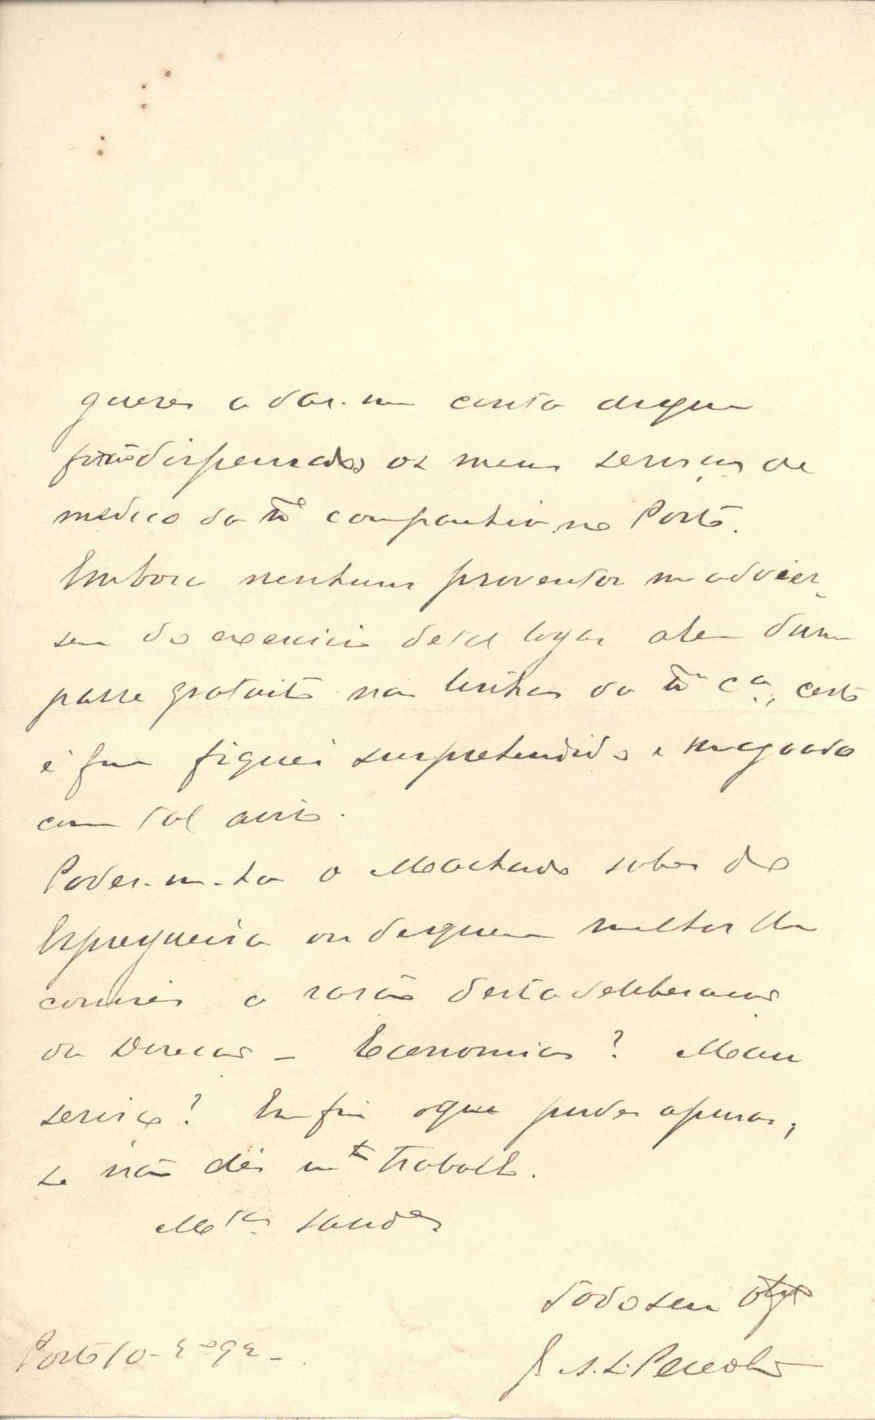 queres a dar-me conta de que
forão dispensados os meus serviços de
medico da m.ª companhia no Porto.
Embora nenhuns proventos me advies-
sem do exercicio deste logar alem dum
passe gratuito nas linhas da m.ª C.ª, certo
é que fiquei surprehendido e magoado
com tal aviso.
Poder-me-ha o Machado saber do
Espregueira ou de quem melhor
a rasão desta deliberação
da Direcção – Economias? Mau
serviço? Emfim o que podér apurar,
se não dér m.to trabalho.
M.tas saudes
Todo seu
J. A. L.
Porto 10-